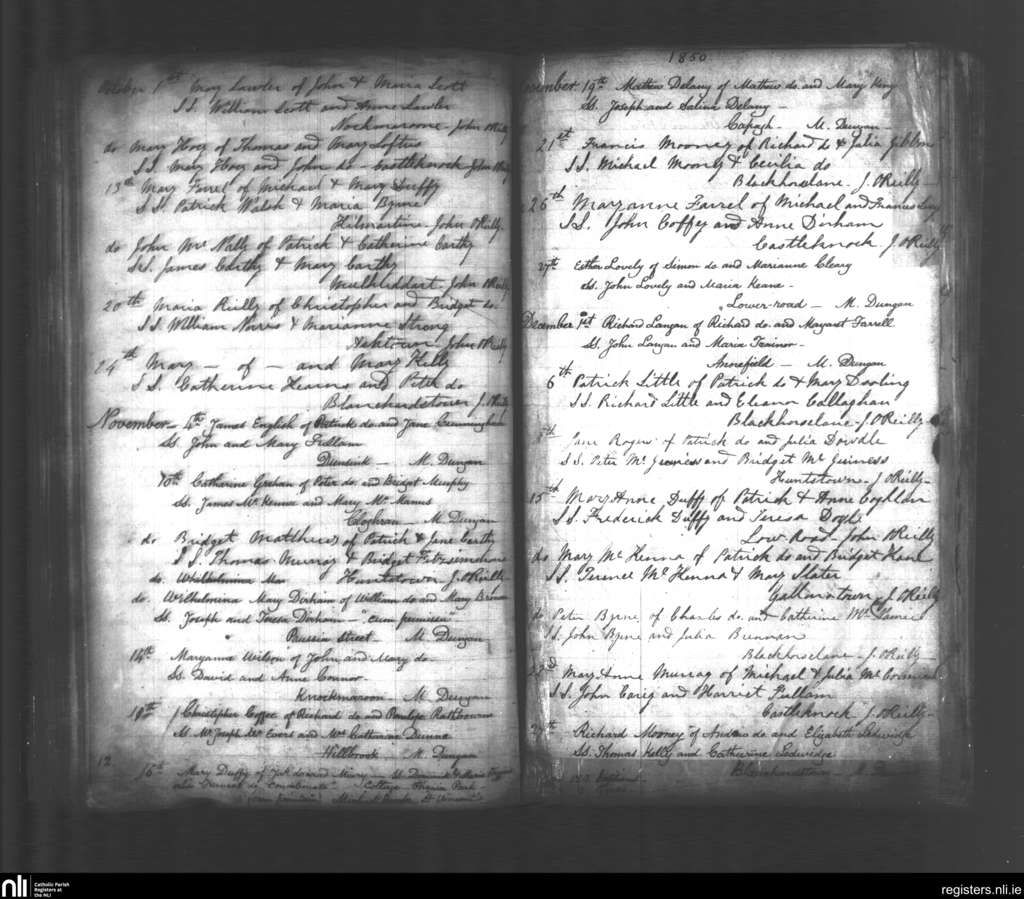 October 1st Mary Lawler of John & Maria Scott
SS. William Scott and Anne Lawler
Nockmaroone - John O'Reilly
do Mary Hoey of Thomas and Mary Loftus
SS. Mary Hoey and John do - Castleknock John O'Reilly
13th Mary Farrel of Michael & Mary Duffy
SS. Patrick Walsh & Maria Byrne
Hilmartine - John O'Reilly.
do John Mc Nally of Patrick & Catherine Carthy
SS. James Carthy & Mary Carthy
Mulhiddart - John O'Reilly
20th Maria Reilly of Christopher and Bridget do.
SS William Norris & Marianne Strong
Ashtown John O'Reilly
24th Mary - of - and Mary Kelly
SS. Catherine Kearns and Peter do
Blanchardstown J. O'Reilly
November - 4th James English of Patrick do and Jane Cunningham
Ss. John and Mary Fullam
Dunsink - M. Dungan
10th Catharine Graham of Peter do. and Bridget Murphy
Ss. James Mc Kenna and Mary Mc Manus
Cloghran - M. Dungan
do Bridget Matthews of Patrick & Jane Carthy
SS. Thomas Murray & Bridget Fitzsimmons
do. Whilhelmina Mar Huntstown J. O'Reilly
do. Wilhelmina Mary Dirham of William do and Mary Brown
Ss. Joseph and Teresa Dirham -
Prussia Street - M Dungan
14th Maryanne Wilson of John and Mary do
Ss. David and Anne Connor -
Knockmaroon - M. Dungan
19th Christopher Coffee of Richard do and Penelope Rathborne
Mc Joseph Evers and Mrs Catharine Dunne
Hillbrook - M. Dungan
12
16th Mary Duffy of
Cottage Phoenix Park -
1850
November 19th Mathew Delany of Mathew do. and Mary King
Ss. Joseph and Salina Delany -
Capagh - M. Dungan -
21st Francis Mooney of Richard do & Julia Gibbons
SS. Michael Mooney & Cecilia do
Blackhorselane - J. O'Reilly -
26th Maryanne Farrel of Michael and Frances
SS. John Coffey and Anne Dirham
Castleknock J. O'Reilly
27th Esther Lovely of Simon do and Marianne Cleary
Ss. John Lovely and Maria Keane -
Lower-road - M. Dungan
December 1st Richard Langan of Richard do. and Margaret Farrell
Ss. John Langan and Maria Trainor -
Annefield - M. Dungan
6th Patrick Little of Patrick do & Mary Dowling
SS. Richard Little and Eleanor Callaghan
Blackhorselane - J. O'Reilly -
8th Jane Rogers of Patrick do and Julia Dowdle
S S. Peter Mc Guiness and Bridget Mc Guiness
Huntstown - J O'Reilly -
15th Mary Anne Duffy of Patrick & Anne Coghlan
SS. Frederick Duffy and Teresa Doyle
Low Road - John O'Reilly
do Mary Mc Kenna of Patrick do and Bridget Kane
SS. Terence Mc Kenna & Mary Slater
J. O'Reilly
do Peter Byrne of Charles do. and Catherine
SS. John Byrne and Julia Brennan
Blackhorselane - J. O'Reilly -
22d Mary Anne Murray of Michael & Julia Mc Cormick
SS. John Carey and Harriet Pullam
Castleknock J. O'Reilly -
29th Richard Mooney of Andrew do and Elizabeth Ledwidge
Ss. Thomas Kelly and Catherine Ledwidge
Blanchardstown - M. D
nli Catholic Parish
Registers at
the NLI
registers.nli.ie